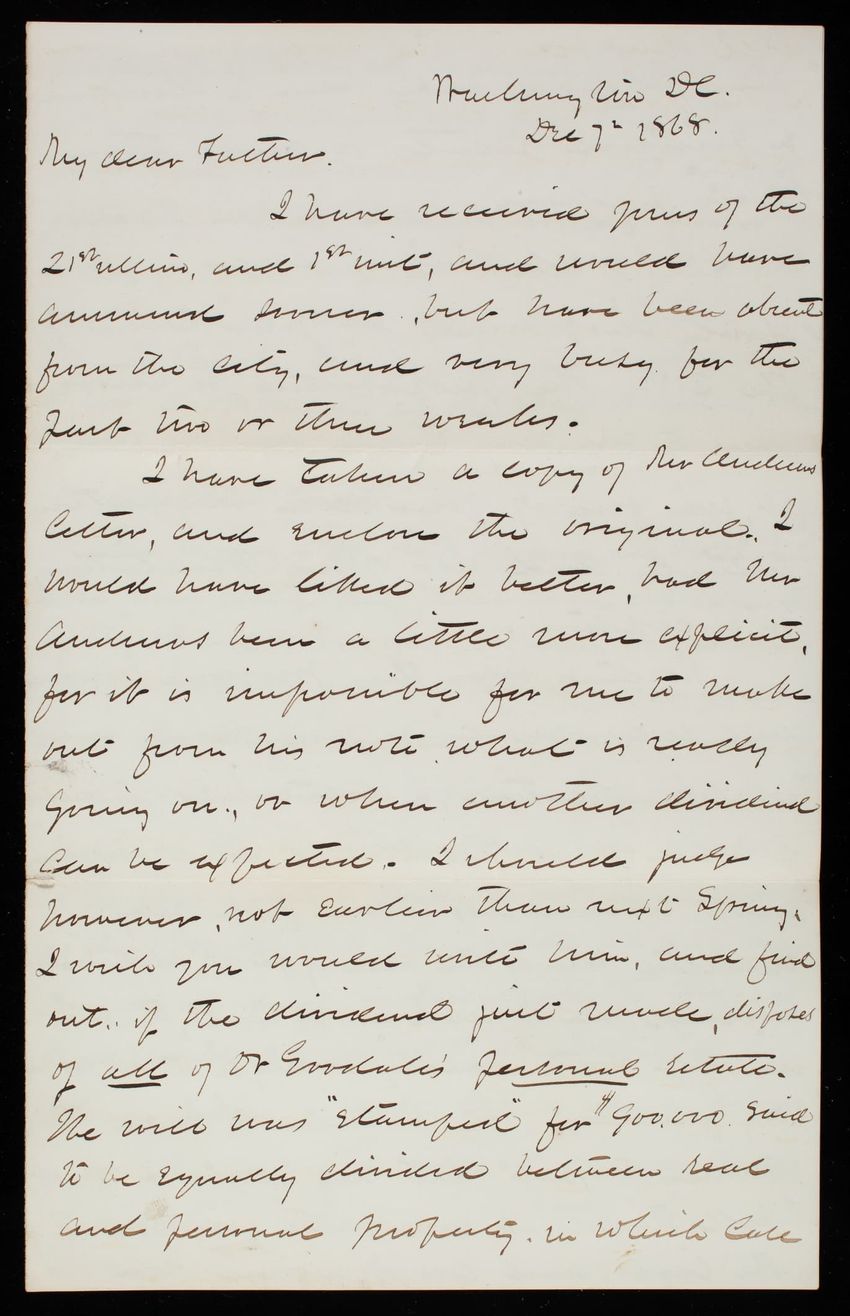 Washington DC.
Dec 7th 1868.
My dear Father.
I have received yours of the
21st ultimo, and 1st inst, and would have
answered sooner, but have been absent
from the city, and very busy for the
past two or three weeks.
I have taken a copy of Mr Andrews
letter, and enclose the original. I
would have liked it better, had Mr
Andrews been a little more explicit,
for it is impossible for me to make
out from his note what is really
going on, or when another dividend
can be expected. I should judge
however, not earlier than next Spring.
I wish you would write him, and find
out, if the dividend just made, disposes
of all of Dr Goodale's personal estate.
The will was "stamped" for $900.000. Said
to be equally divided between real
and personal property. in which case